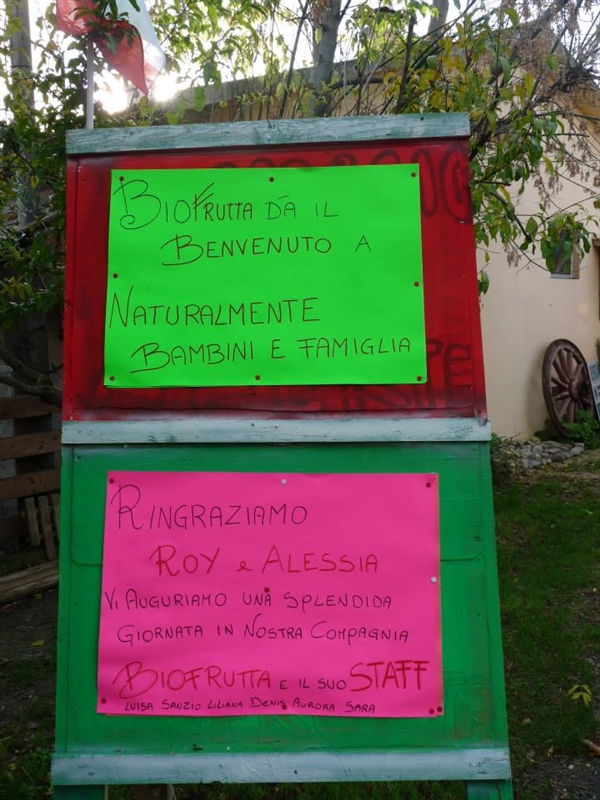 BIOFRUTTA DÀ IL
BENVENUTO A
NATURALMENTE
BAMBINI E FAMIGLIA
RINGRAZIAMO
ROY e ALESSIA
VI AUGURIAMO UNA SPLENDIDA
GIORNATA IN NOSTRA COMPAGNIA
BIOFRUTTA E IL SUO STAFF
LUISA SANZIO LILIANA DENIS AURORA SARA